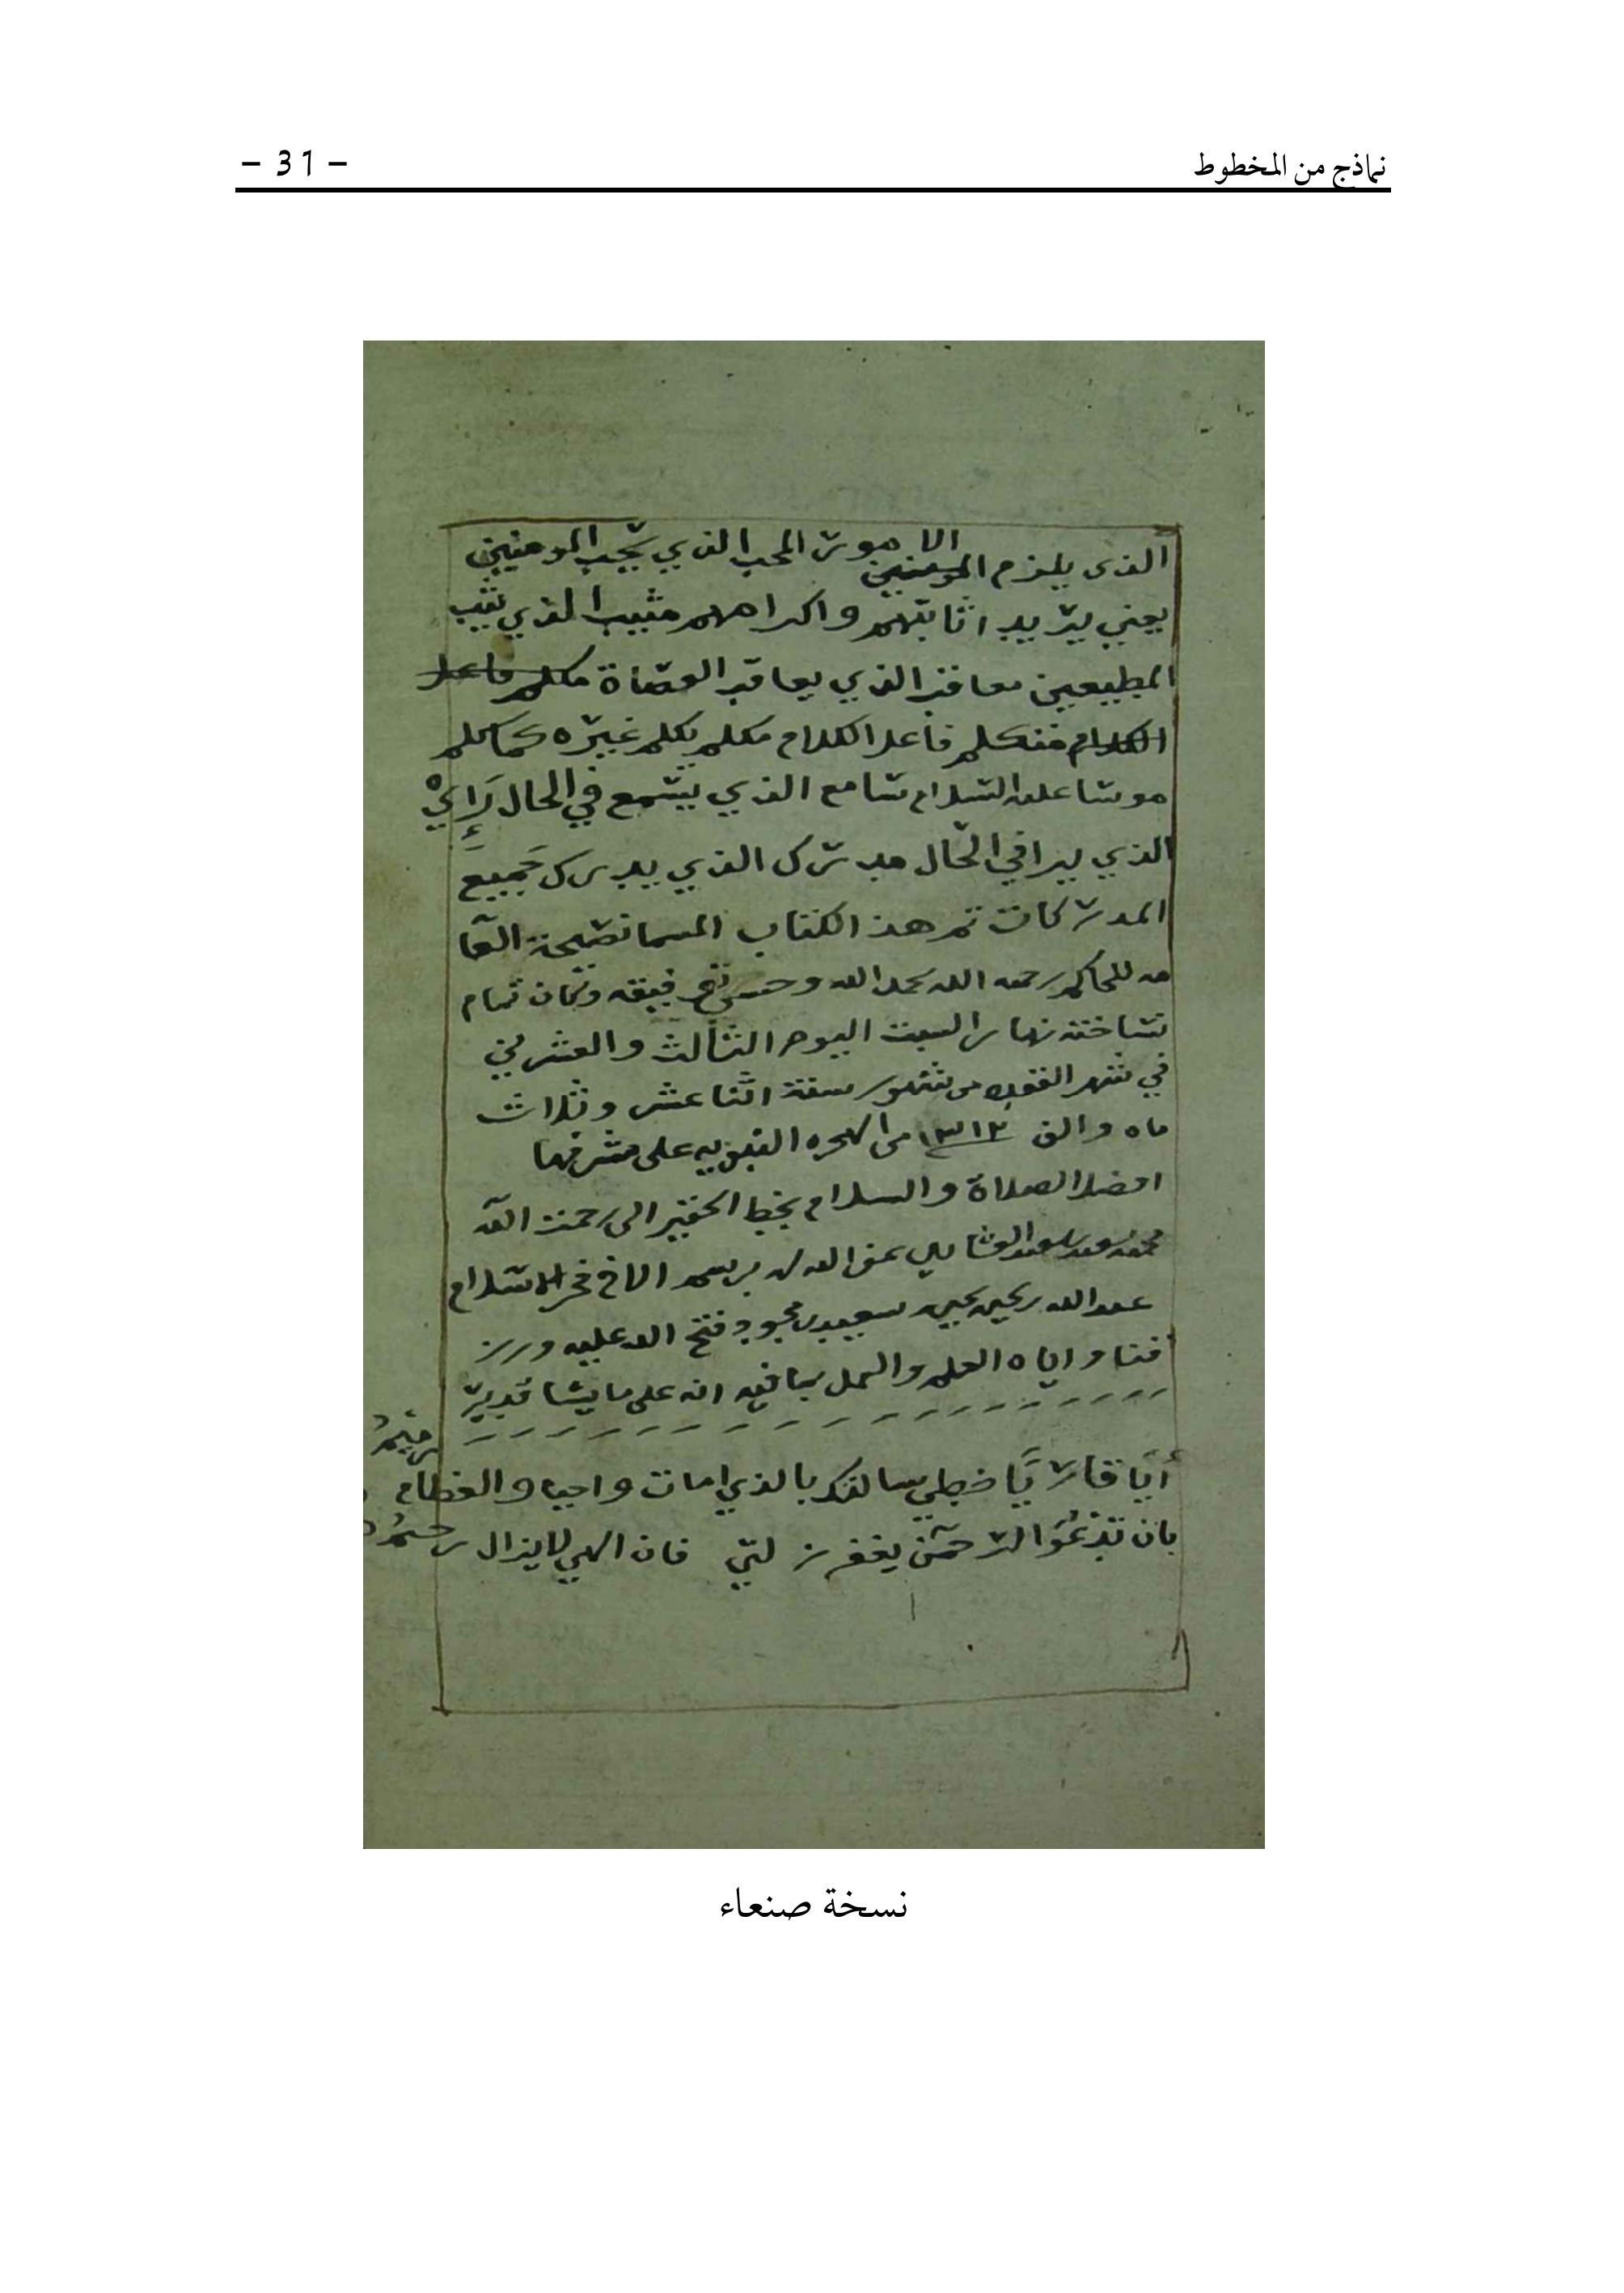 نماذج من المخطوط
– 31 –
الذى يلزم المومنين الامور المحب الذي يحب المومنين
يعني يريد اثابتهم واكرامهم مثيب الذي يثيب
المطيعين معاقب الذي يعاقب العصاة مكلم فاعل
الكلام متكلم فاعل الكلام مكلم يكلم غيره كما كلم
موسا عليه السلام سامع الذي يسمع في الحال رَاءٍي
الذي يرا في الحال مدرك الذي يدرك جَميع
المدركات تم هذ الكتاب المسما نصيحة العا
مه للحاكم رحمه الله بحمد الله وحسن توفيقه وكان تمام
نساخته نهار السبت اليوم الثالث والعشرين
في شهر القعده من شهور سنة اثنا عشر وثلاث
ماه والف ١٣١٢ من الهجره النبويه على مشرفها
افضل الصلاة والسلام بخط الحقير الى رحمت الله
محمد سعد سعد عفى الله له برسم الاخ فخر الاسلام
عبد الله يحيى يحيى سعيد فتح الله عليه ورز
قنا واياه العلم والعمل بما فيه انه على ما يشا قدير
أيَا قارئاً خطي سالتك بالذي امات واحيا والعظام رميمُ
بان تَدْعُوَ الرحمَن يغفر زلتي فان الهي لا يزال رحيمُ
نسخة صنعاء